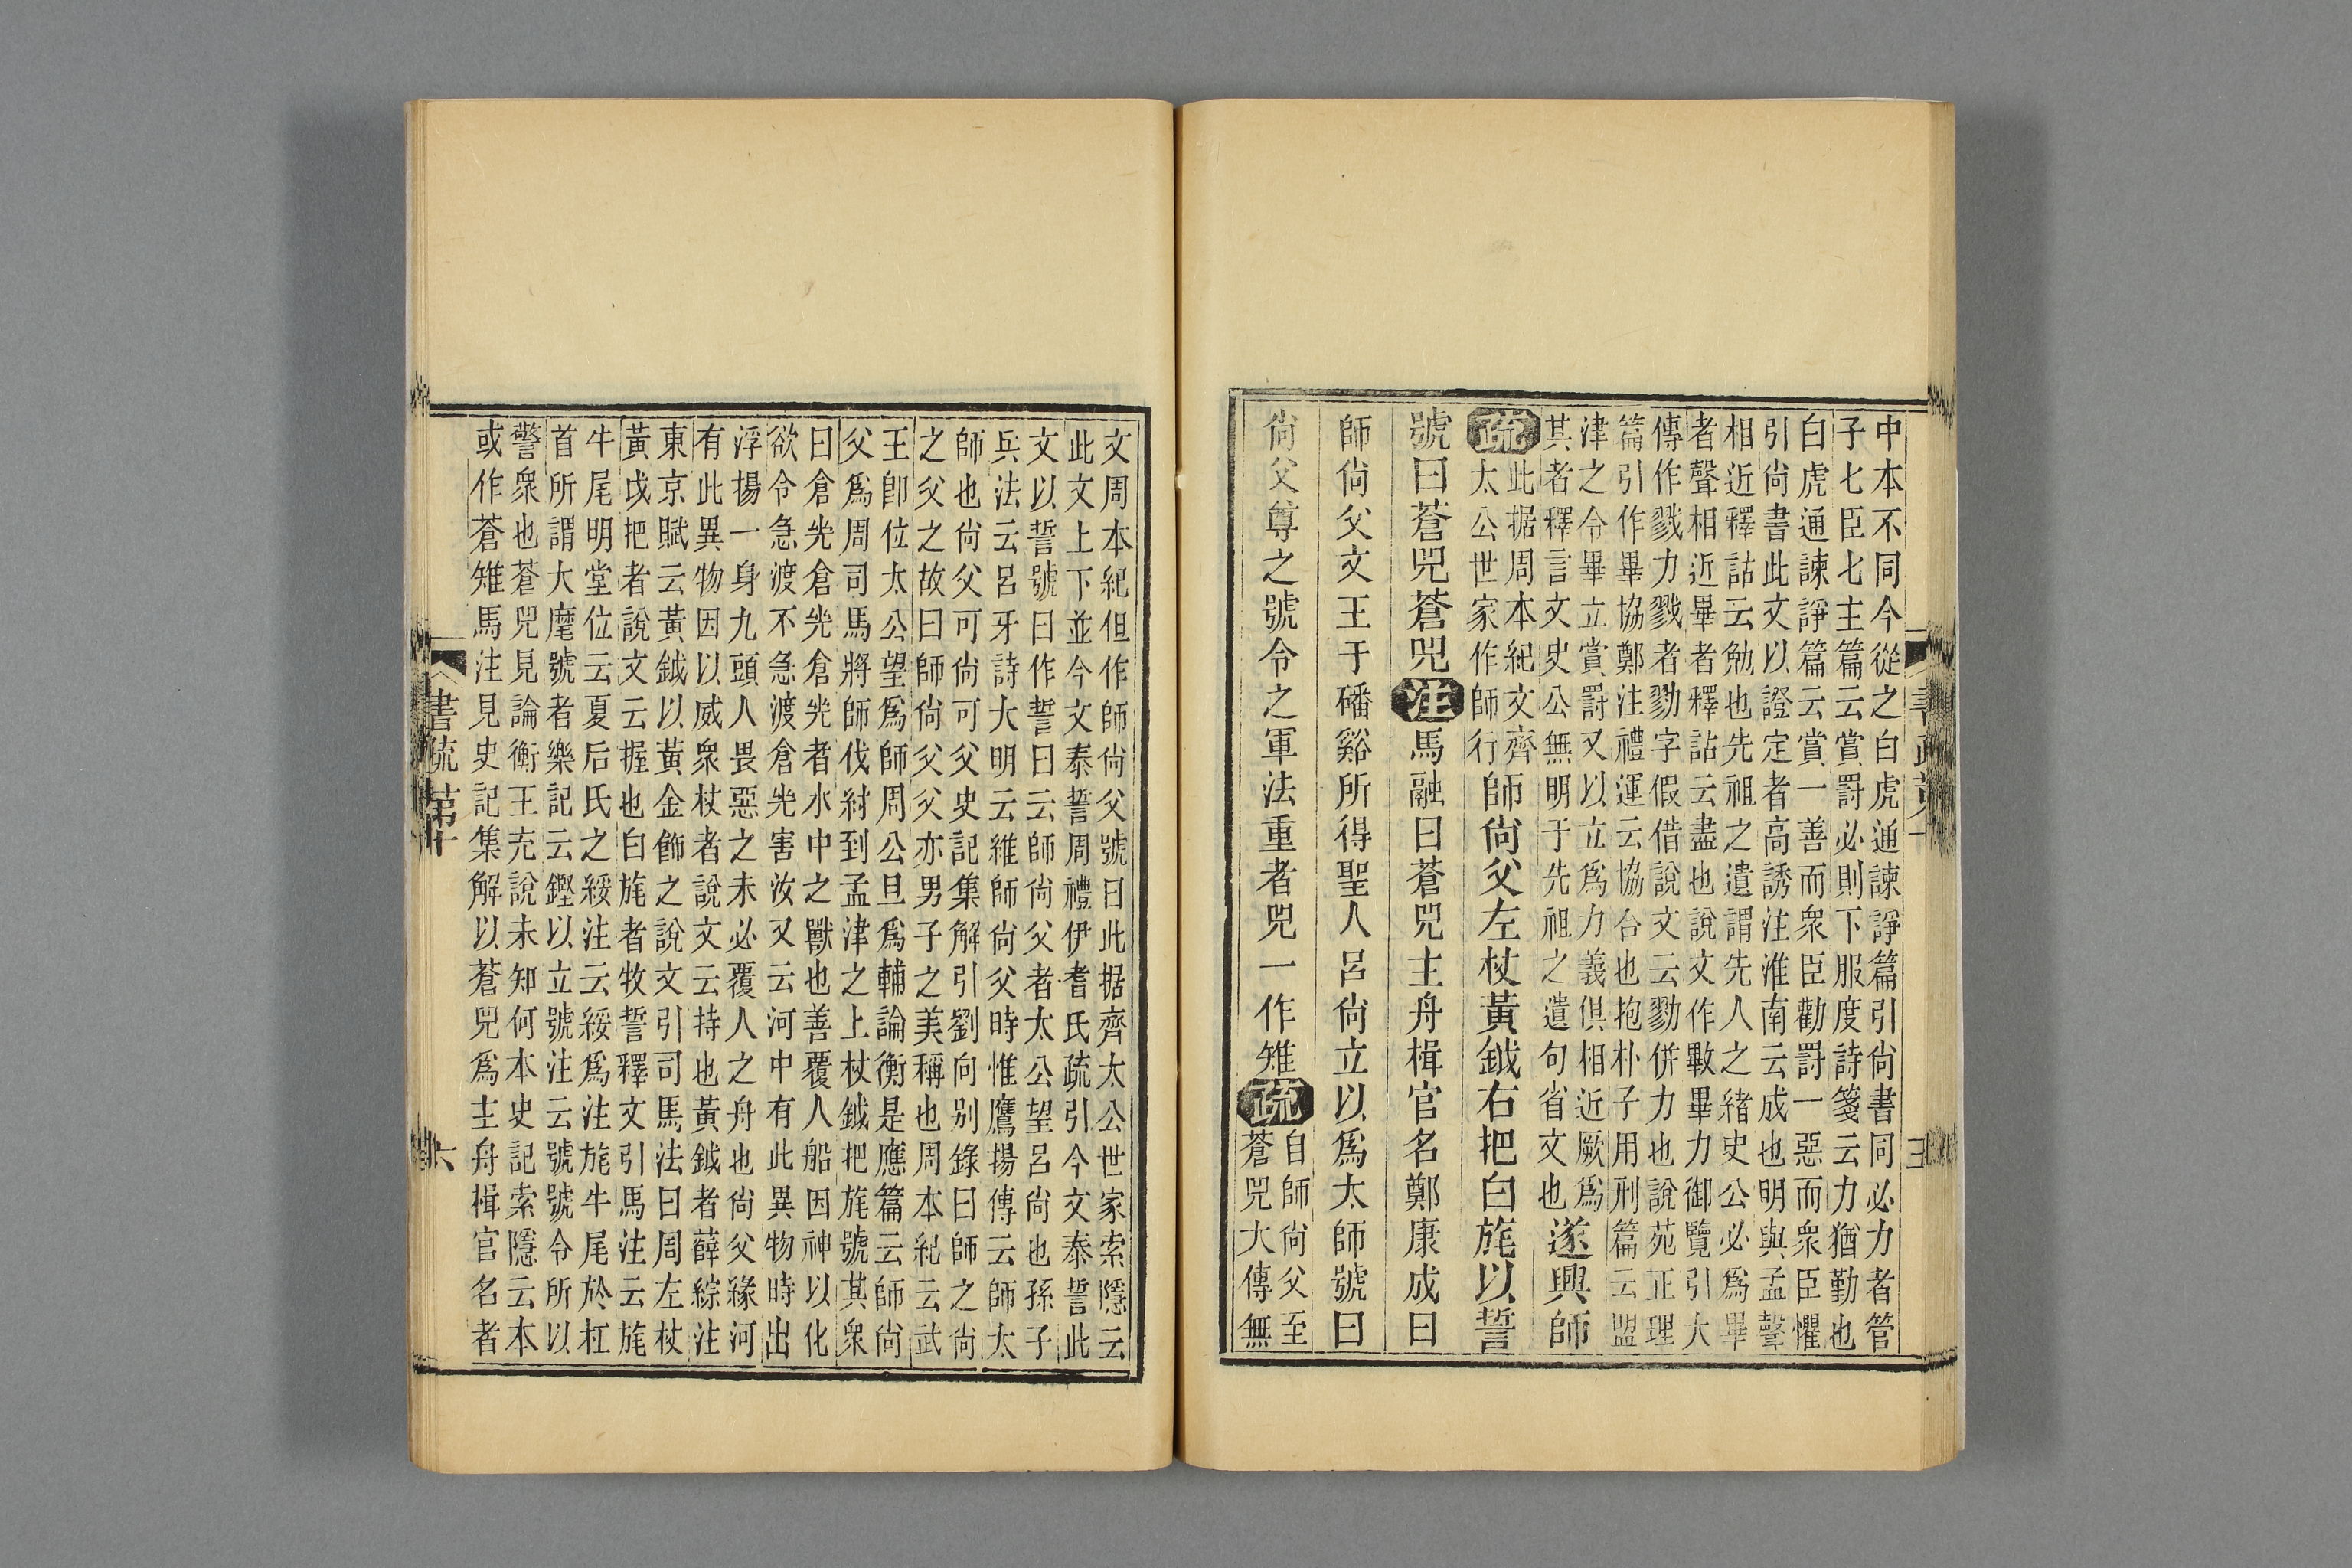 中本不同今從之白虎通諫諍篇引尚書同必力者管
子七臣七主篇云賞罰必則下服度詩箋云力猶勤也
白虎通諫諍篇云賞一善而衆臣勸罰一惡而衆臣懼
引尚書此文以證定者高誘注淮南云成也明與孟聲
相近釋詁云勉也先祖之遺謂先人之緒史公必爲畢
者聲相近畢者釋詁云盡也說文作斁畢力御覽引大
傳作戮力戮者勠字假借說文云勠併力也說苑正理
篇引作畢協鄭注禮運云協合也抱朴子用刑篇云盟
津之令畢立賞罰又以立爲力義俱相近厥爲
其者釋言文史公無明于先祖之遺句省文也遂興師
疏此据周本紀文齊
太公世家作師行師尚父左杖黃鉞右把白旄以誓
號曰蒼兕蒼兕注馬融曰蒼兕主舟楫官名鄭康成曰
師尚父文王于磻谿所得聖人呂尚立以爲太師號曰
尚父尊之號令之軍法重者兕一作雉疏自師尚父至
蒼兕大傳無
文周本紀但作師尚父號曰此据齊太公世家索隱云
此文上下並今文泰誓周禮伊耆氏疏引今文泰誓此
文以誓號曰作誓曰云師尚父者太公望呂尚也孫子
兵法云呂牙詩大明云維師尚父時惟鷹揚傳云師太
師也尚父可尚可父史記集解引劉向别錄曰師之尚
之父之故曰師尚父父亦男子之美稱也周本紀云武
王卽位太公望爲師周公旦爲輔論衡是應篇云師尚
父爲周司馬將師伐紂到孟津之上杖鉞把旄號其衆
曰倉光倉光倉光者水中之獸也善覆人船因神以化
欲令急渡不急渡倉光害汝又云河中有此異物時出
浮揚一身九頭人畏惡之未必覆人之舟也尚父緣河
有此異物因以威衆杖者說文云持也黃鉞者薛綜注
東京賦云黃鉞以黃金飾之說文引司馬法曰周左杖
黃戉把者說文云握也白旄者牧誓釋文引馬注云旄
牛尾明堂位云夏后氏之綏注云綏爲注旄牛尾於杠
首所謂大麾號者樂記云鏗以立號注云號號令所以
警衆也蒼兕見論衡王充說未知何本史記索隱云本
或作蒼雉馬注見史記集解以蒼兕爲主舟楫官名者
書疏第十
六